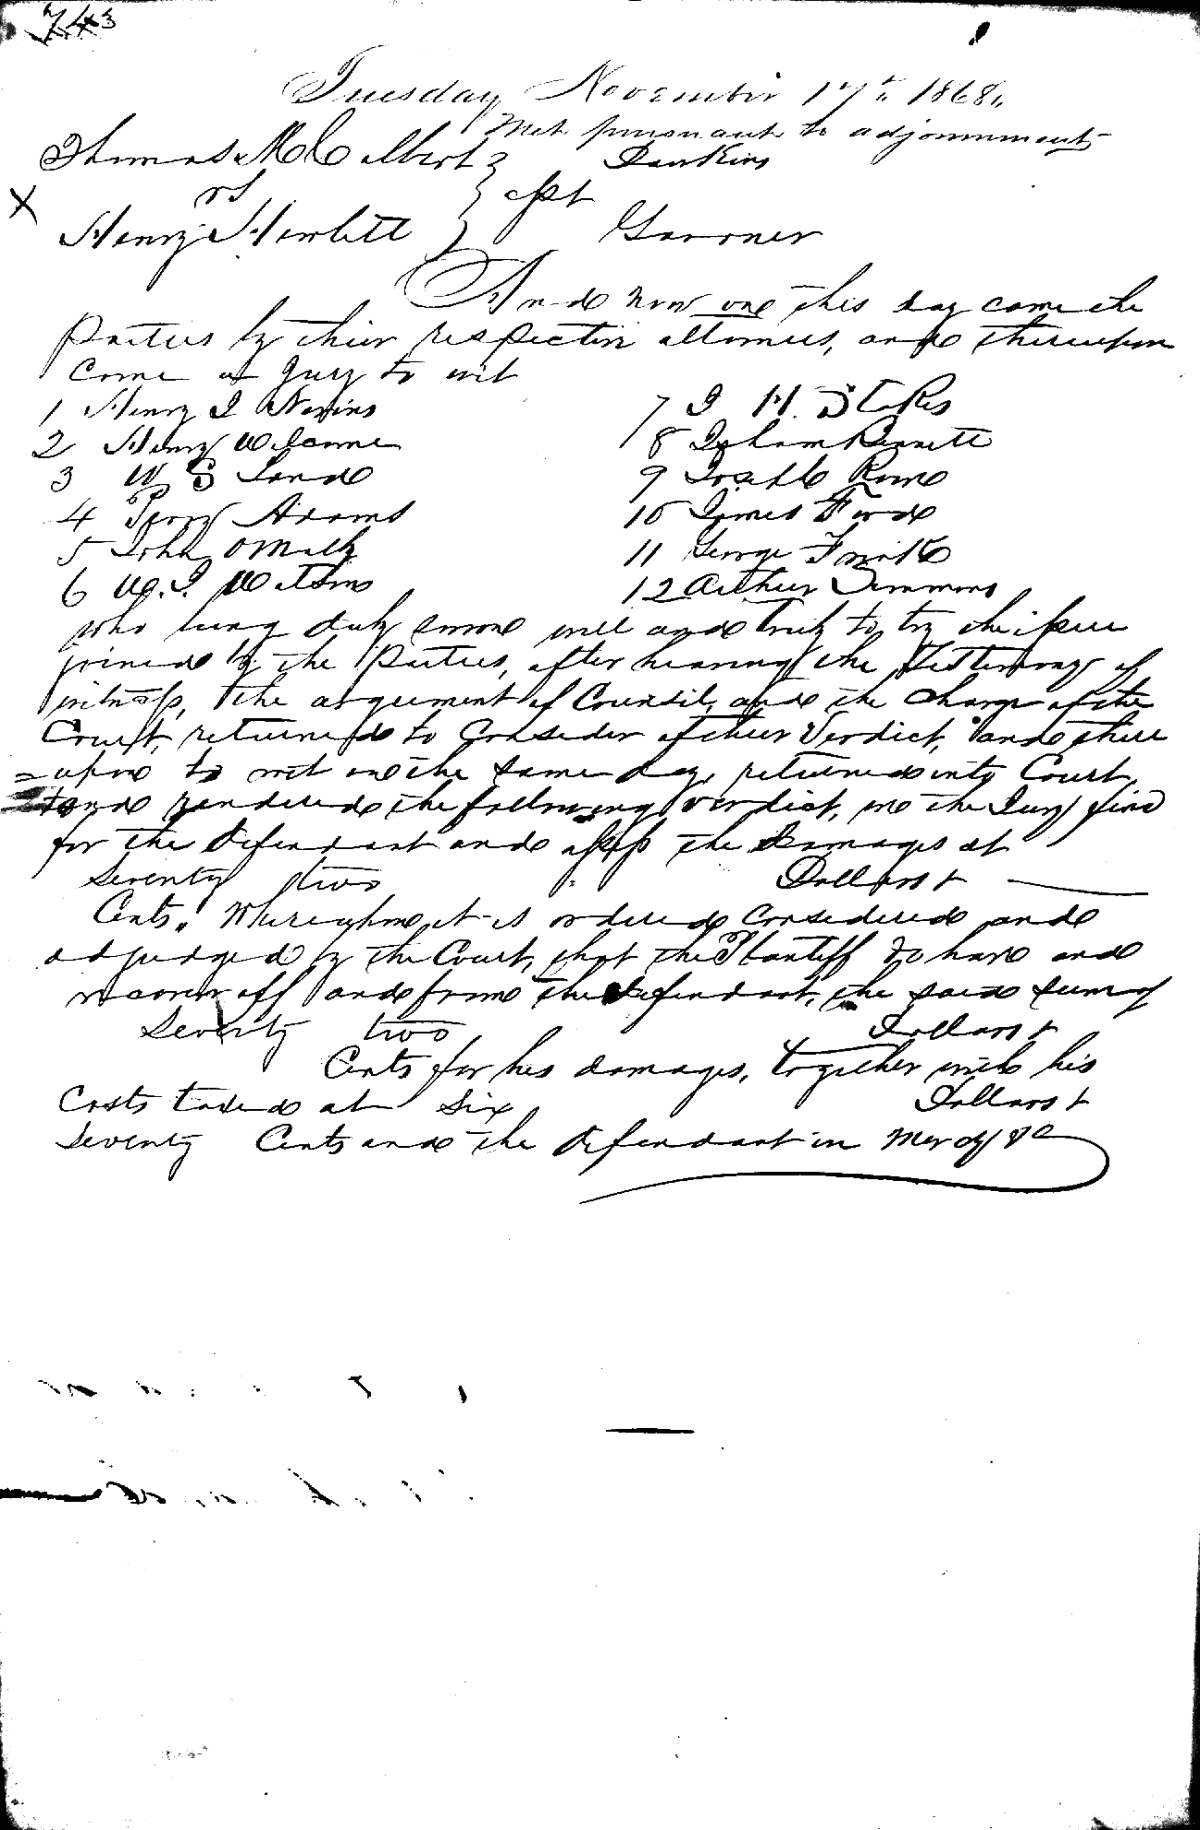 743
Tuesday November 17th 1868.
Met pursuant to adjournment
Thomas M C Albert } Dawkins
vs } Asst
X
Henry Hewlett } Garoner
And now one this day came the
Parties by thier respective attornies, and thereupon
Come a Jury to wit
1 Henry I Nevins
2 Henry
3 W S Land
4 Perry Adams
5 John OMally
6 W. I. Watson
7 I H. Stokes
8 Isham Bennett
9 Rowe
10 James Forde
11 George
12 Arthur Simmons
who being duly sworne well and truly to, try the issue
joined by the Parties, after hearing the Testimony of
witness, the argument of Council, and the Charge of the
Court, returned to Consider of thier Verdict, and there
=upon to wit one the same day, returned into Court,
and rendered the following verdict, we the Jury find
for the defendant and assess the Damages at
Seventy two Dollars &
Cents. Whereupone it is ordered Considered and
adjudged by the Court, that the Plantiff do have and
recover off and frome the defendant, the said sum of
Seventy two Dollars &
Cents for his damages, together with his
Costs taxed at six Dollars &
Seventy Cents and the defendant in Mercy &c